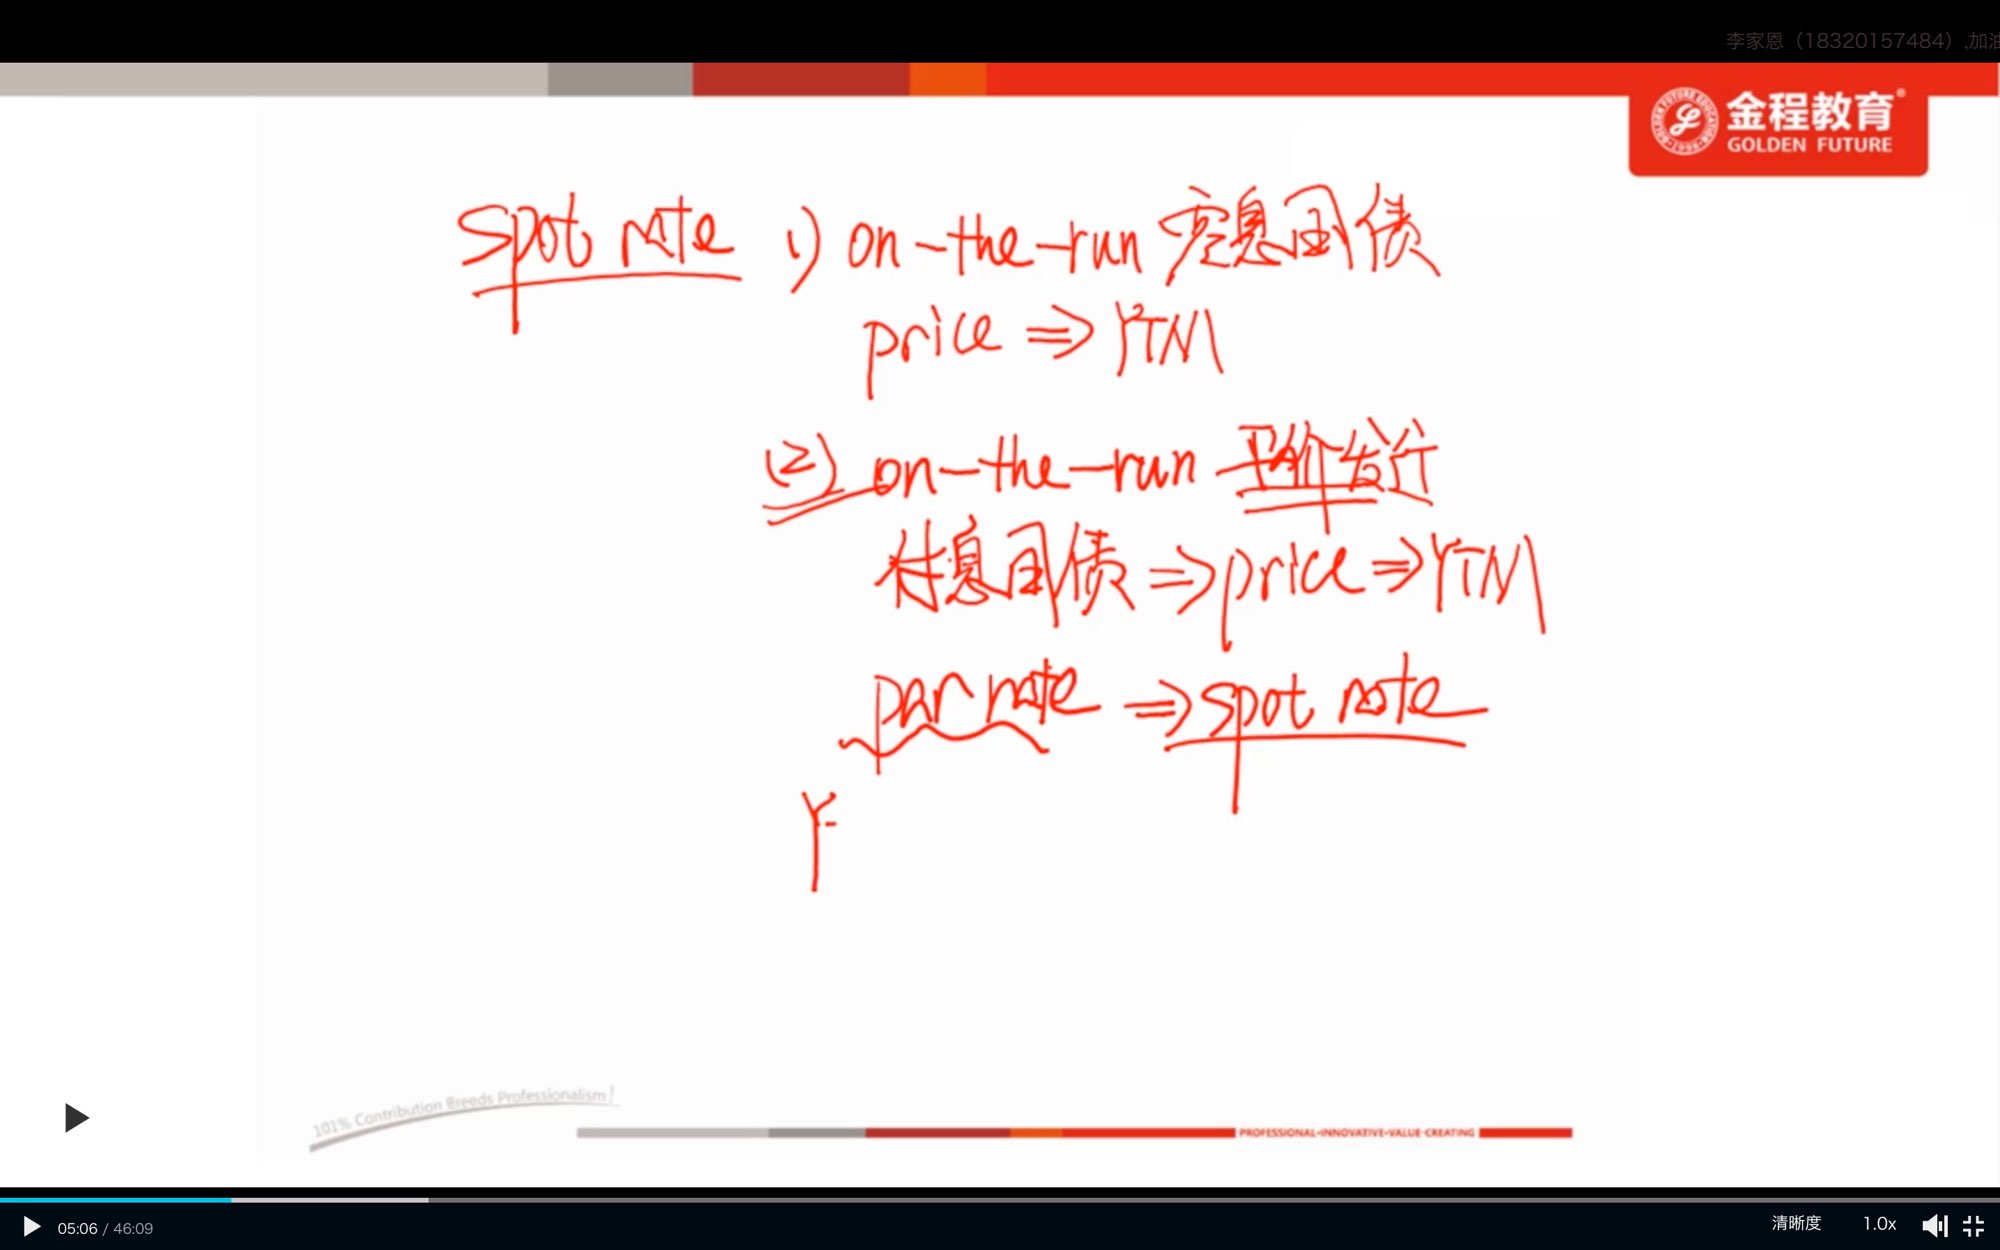 李家恩（18320157484）,加油
金程教育®
GOLDEN FUTURE
spot rate 1) on-the-run 零息国债
price ⇒ YTM
(2) on-the-run 平价发行
付息国债 ⇒ price ⇒ YTM
par rate ⇒ spot rate
Y
101% Contribution Breeds Professionalism!
PROFESSIONAL·INNOVATIVE·VALUE-CREATING
05:06 / 46:09
清晰度 1.0x